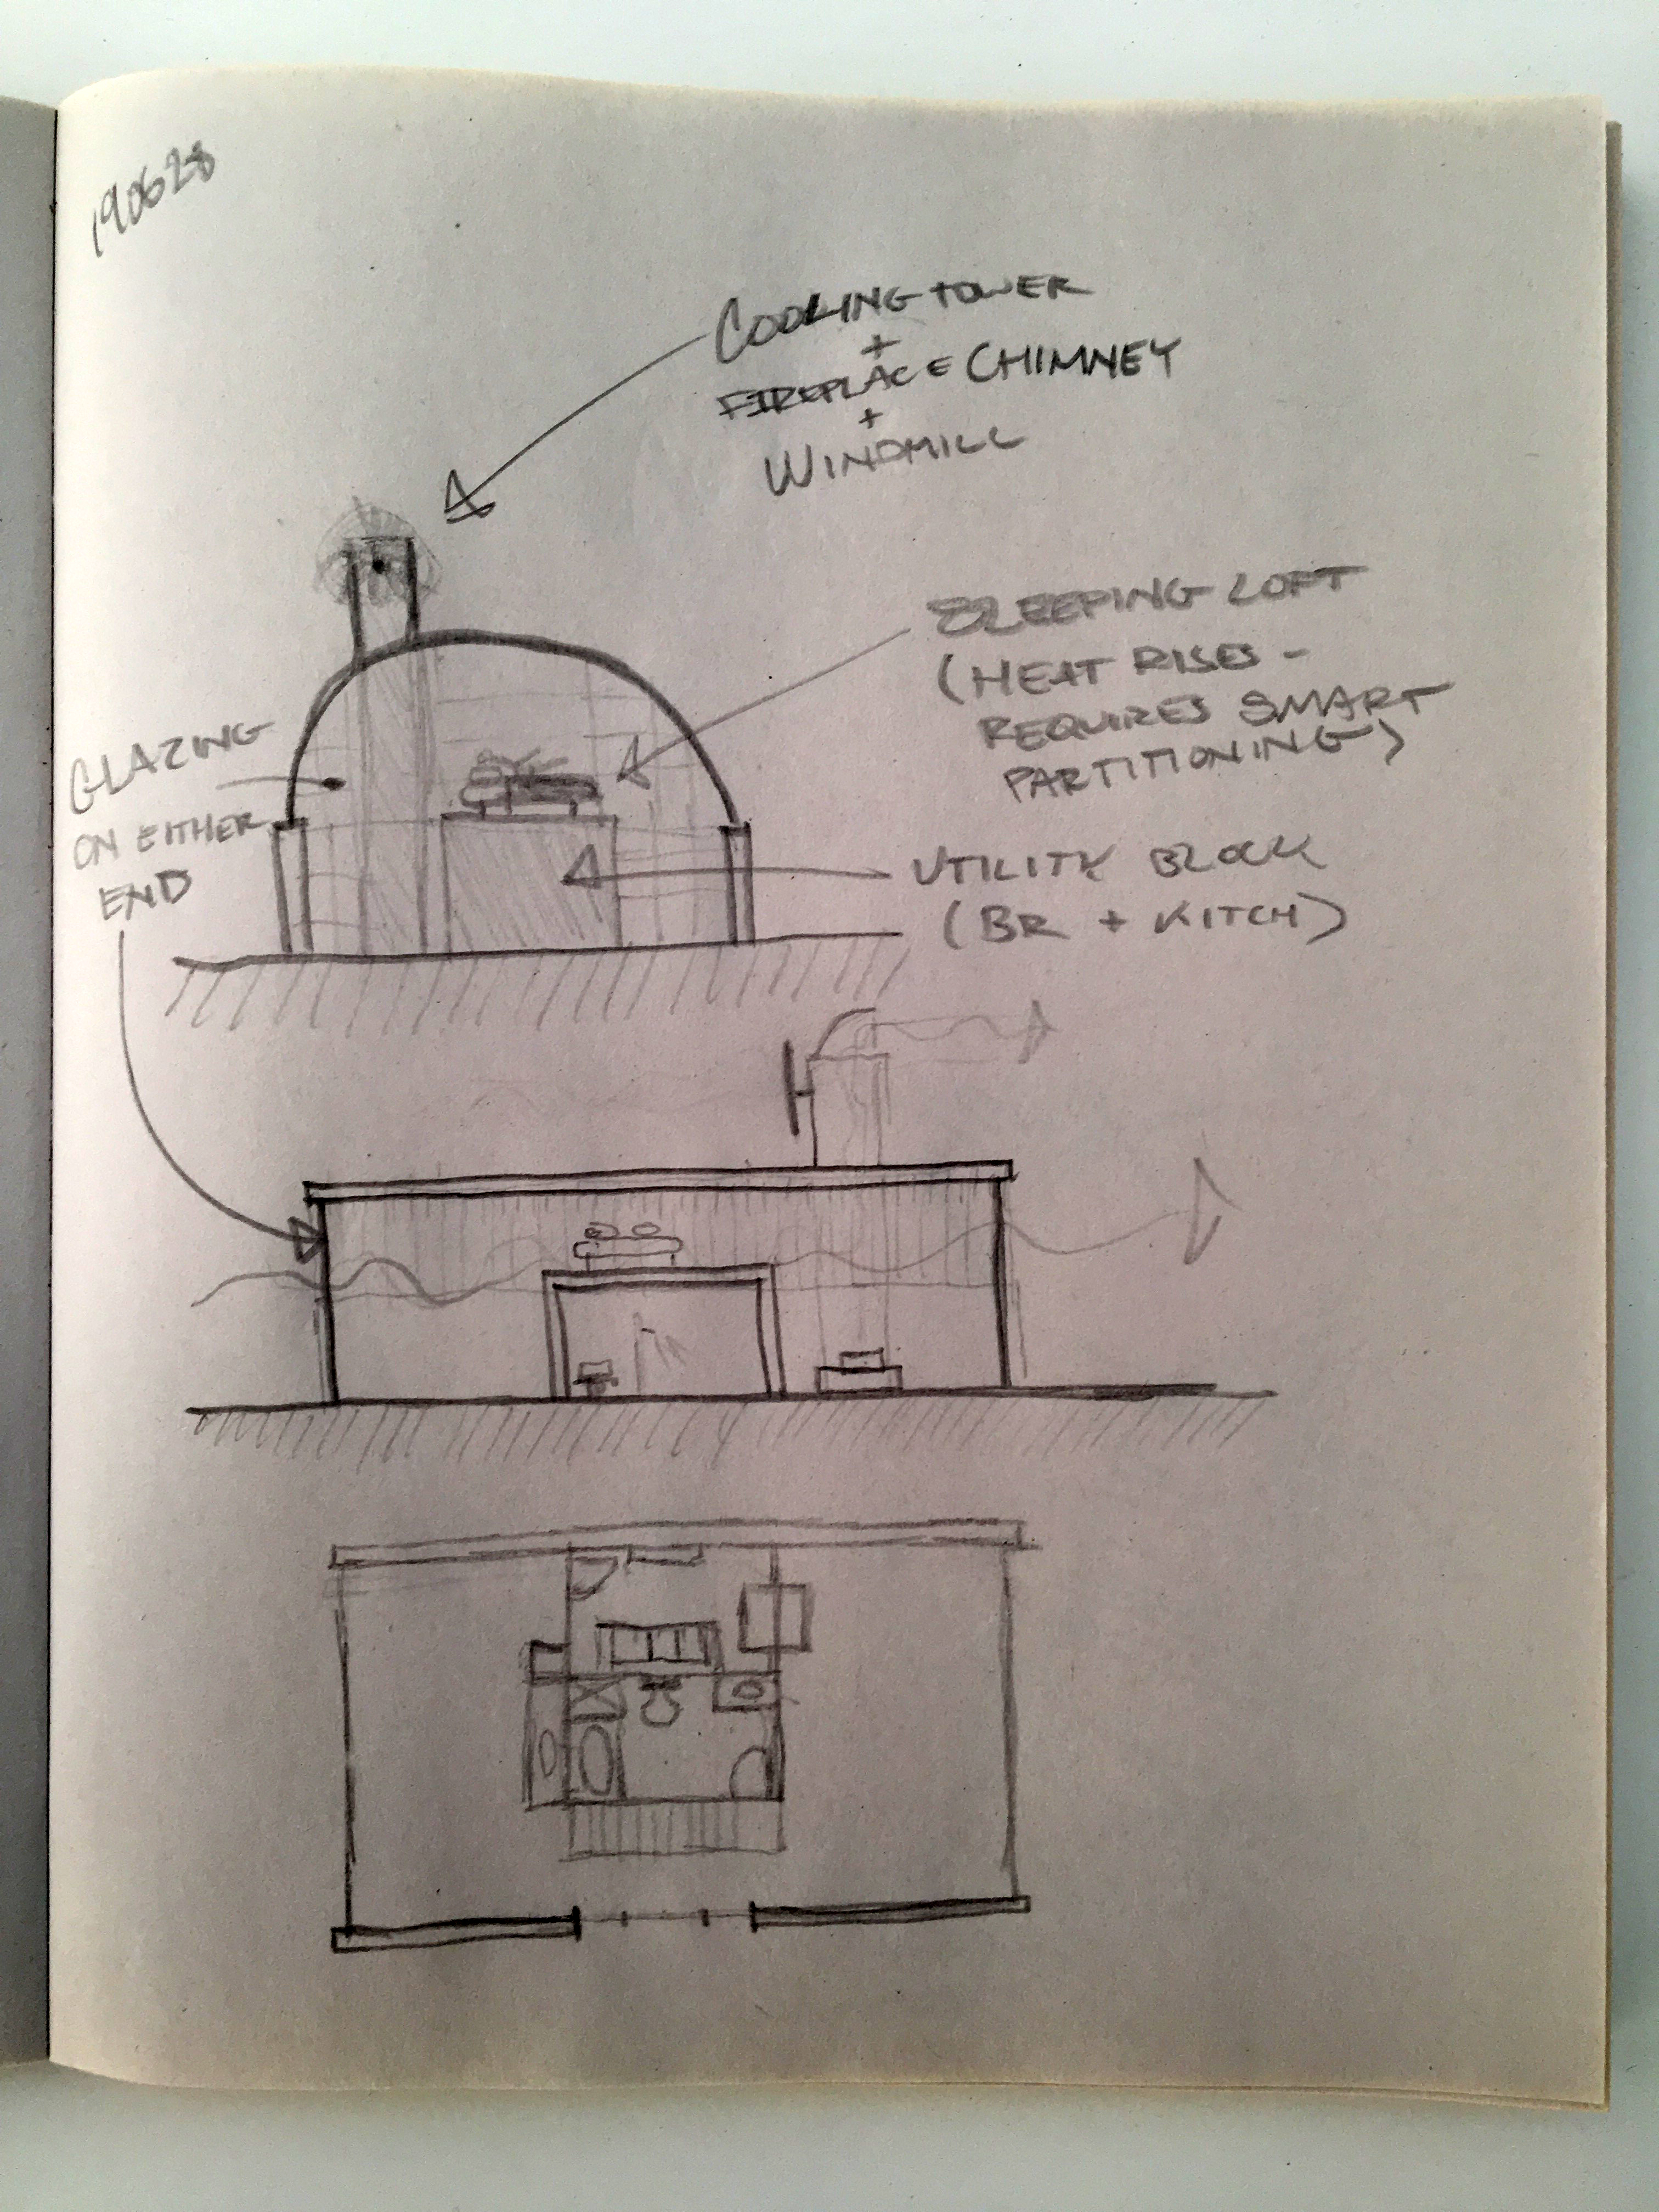 190628
COOLING TOWER
+
FIREPLACE CHIMNEY
+
WINDMILL
SLEEPING LOFT
(HEAT RISES -
REQUIRES SMART
PARTITIONING)
GLAZING
ON EITHER
END
UTILITY BLOCK
(BR + KITCH)